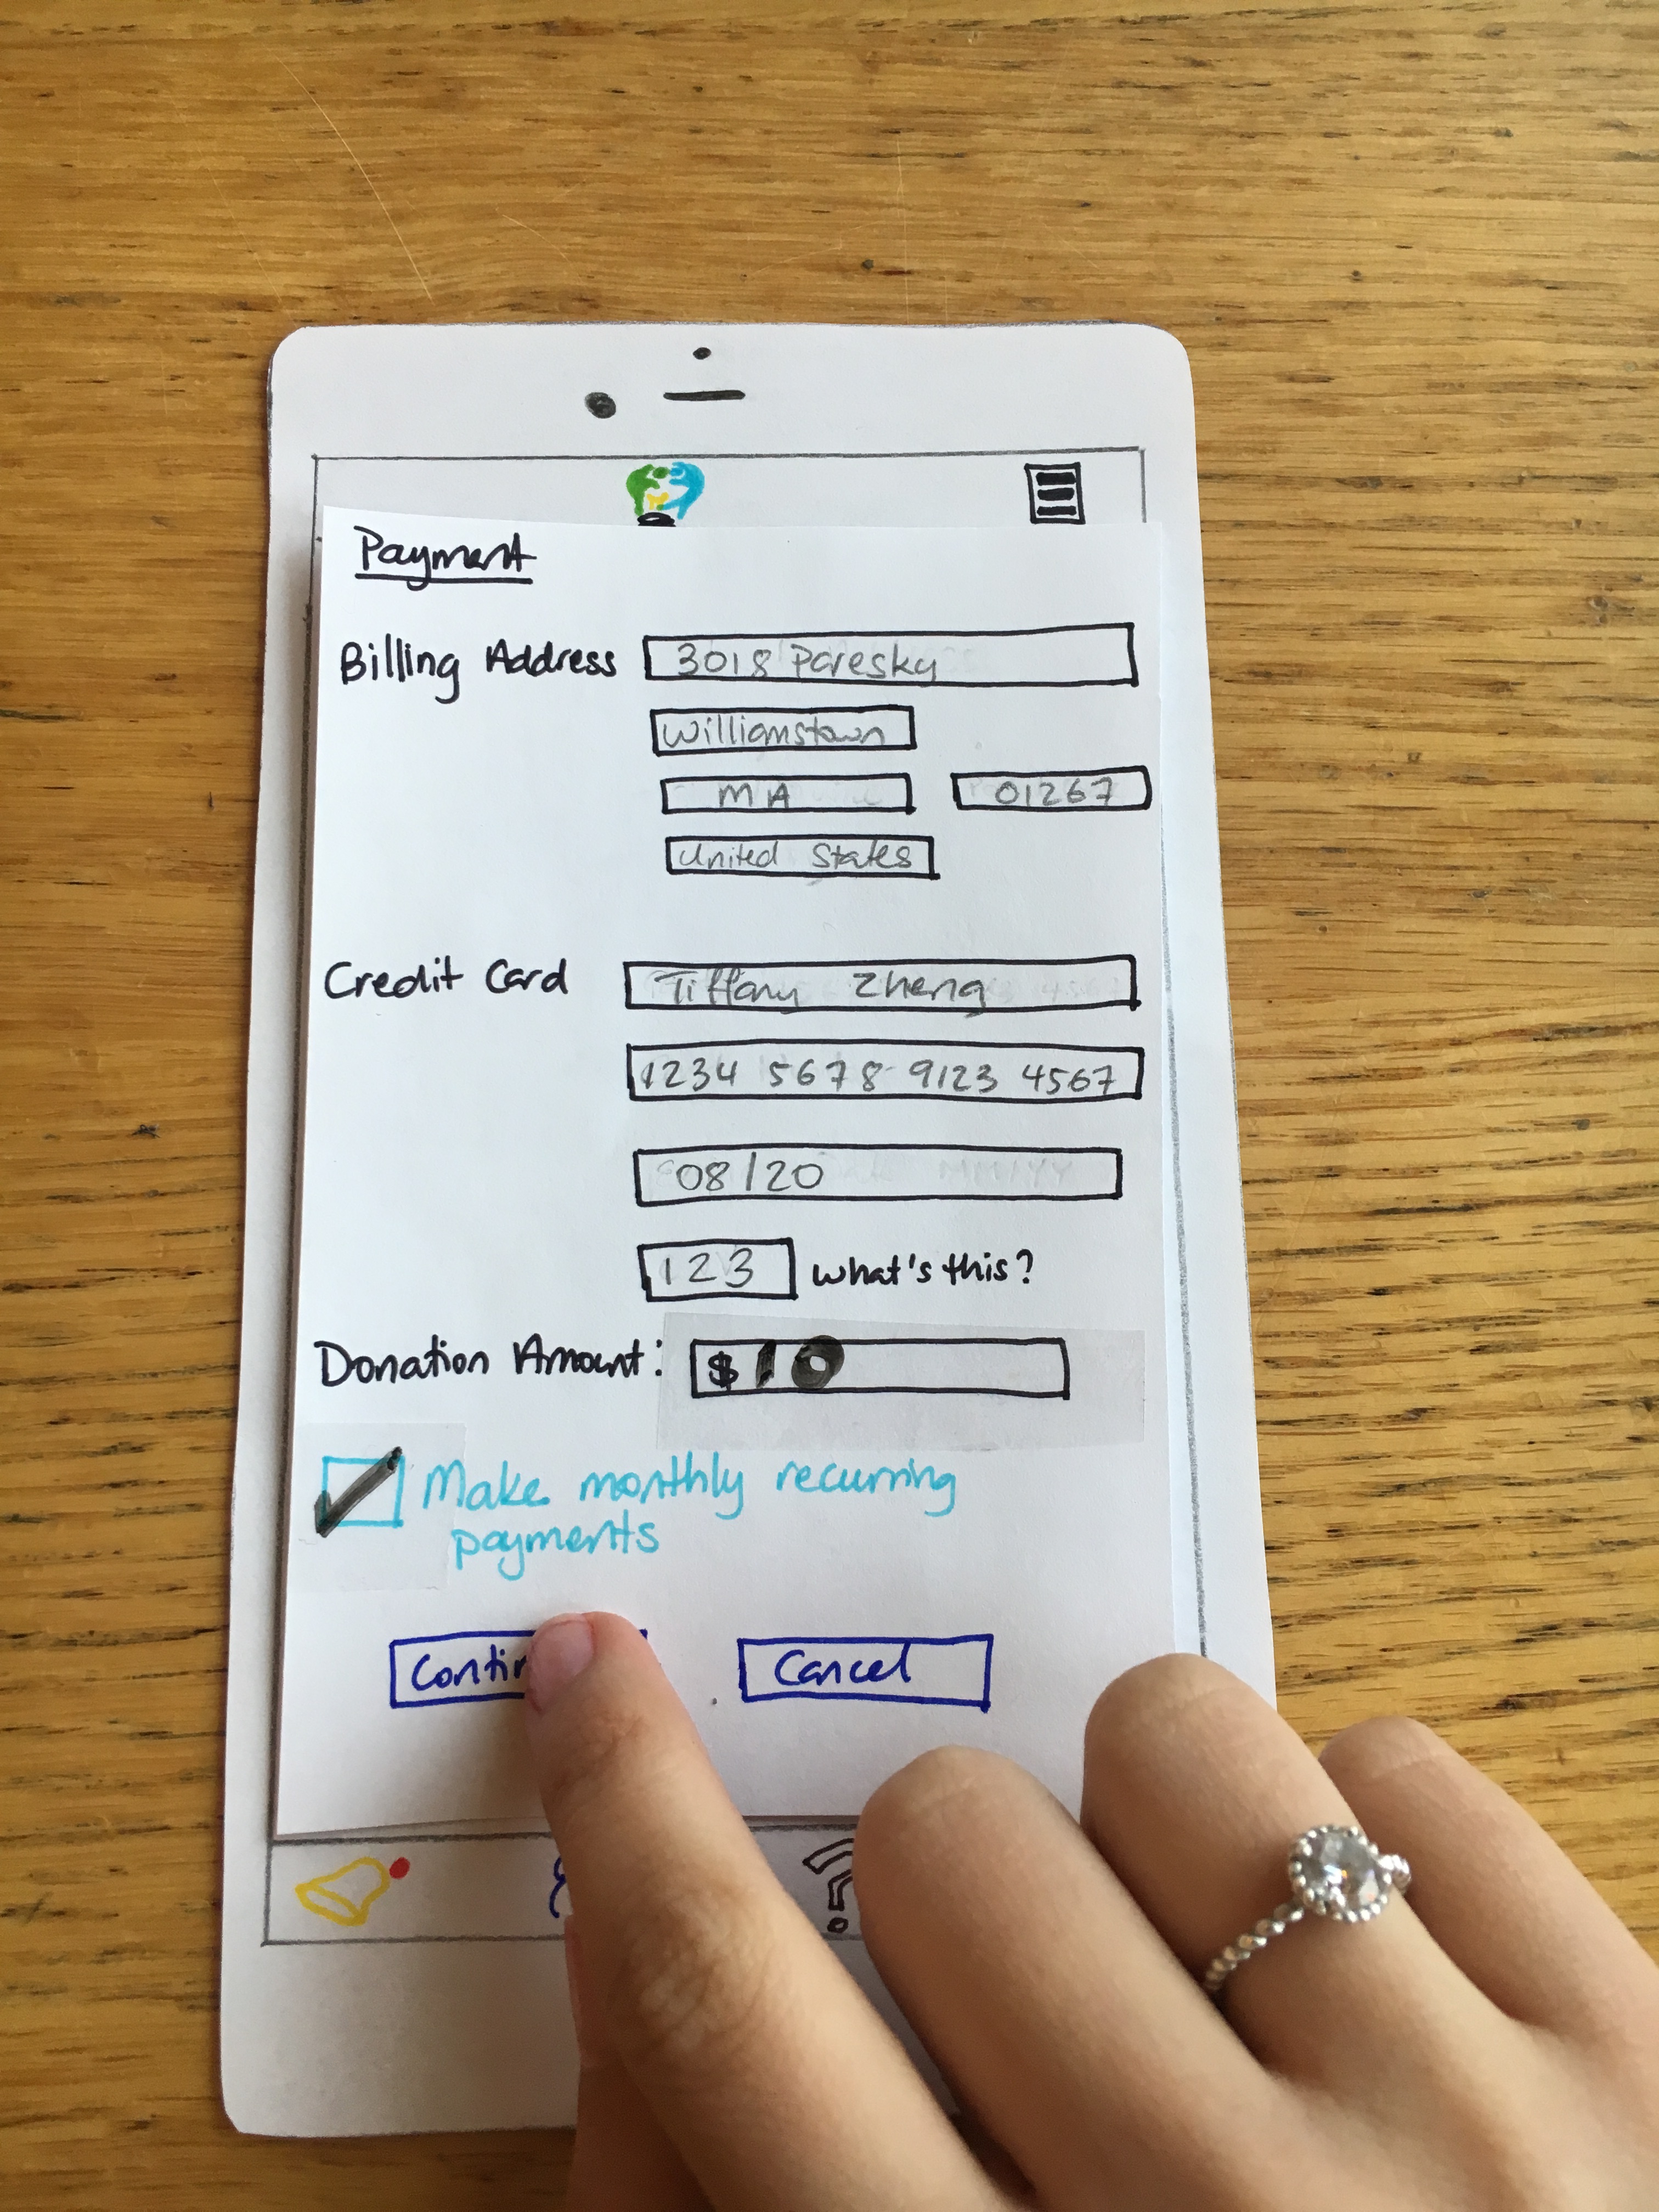 Payment
Billing Address 3018 Paresky
Williamstown
MA 01267
United States
Credit Card Tiffany Zheng
1234 5678 9123 4567
08/20
123 what's this?
Donation Amount: $ 10
Make monthly recurring
payments
Cancel
?